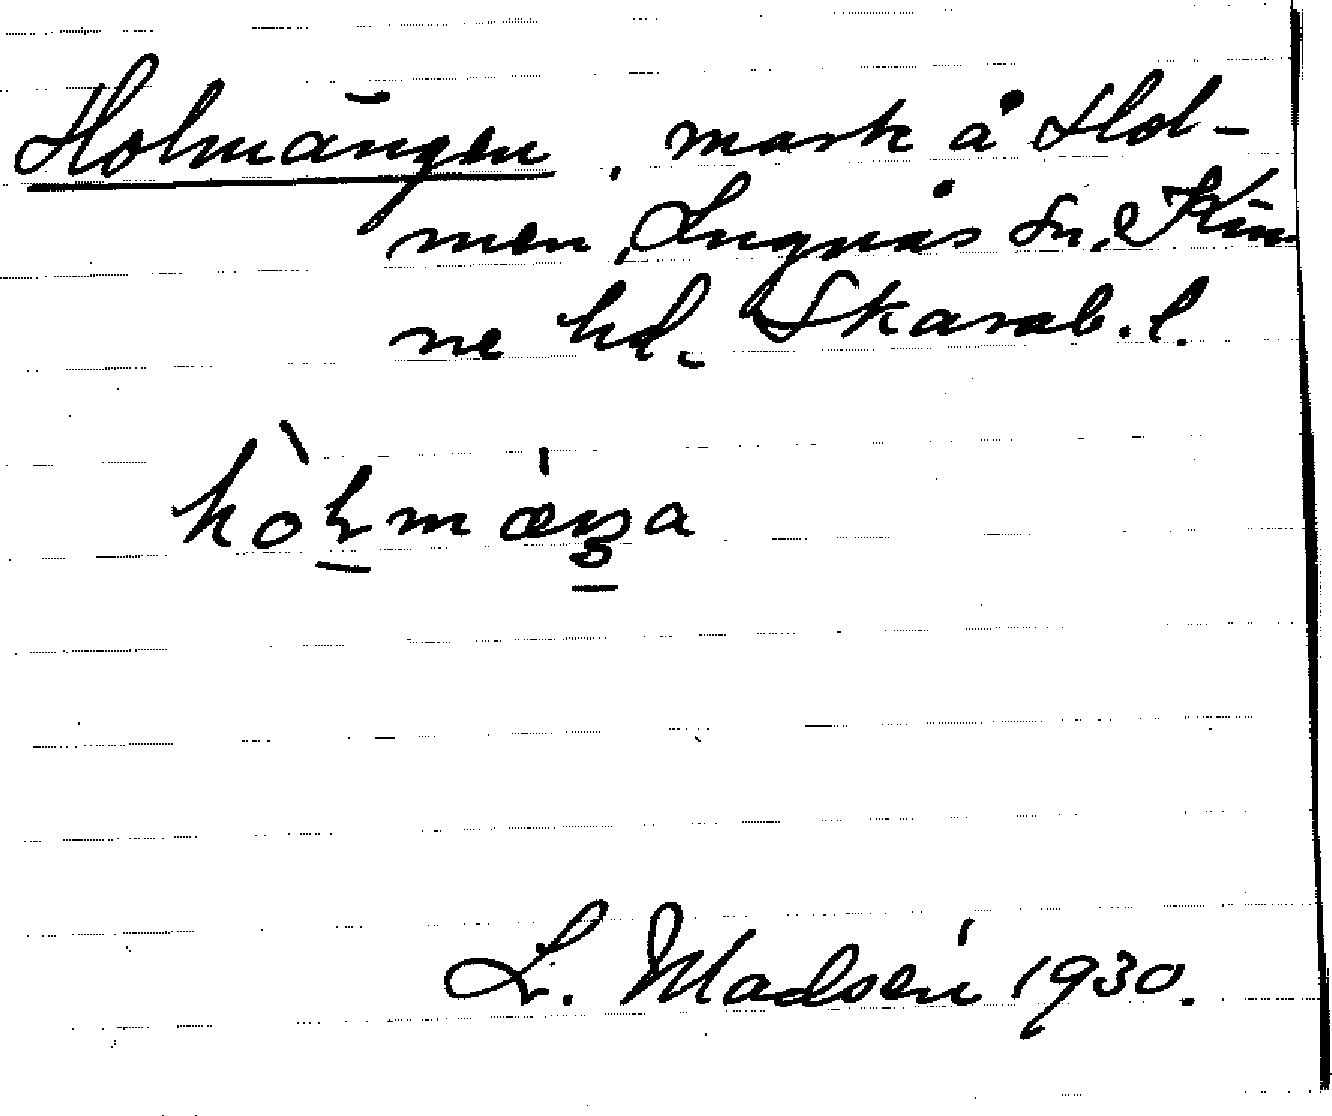 Holmängen, mark å Hol-
men, Lugnås sn, Kin
ne hd, Skarab. l.
hòlmæŋa
L. Madsén 1930.